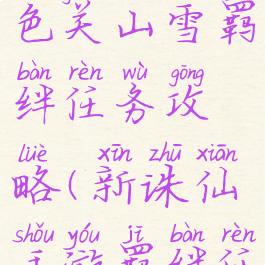 色关山雪羁
bàn rèn wù gōng
绊任务攻
lüè xīn zhū xiān
略(新诛仙
shǒu yóu jī bàn rèn
手游羁绊任